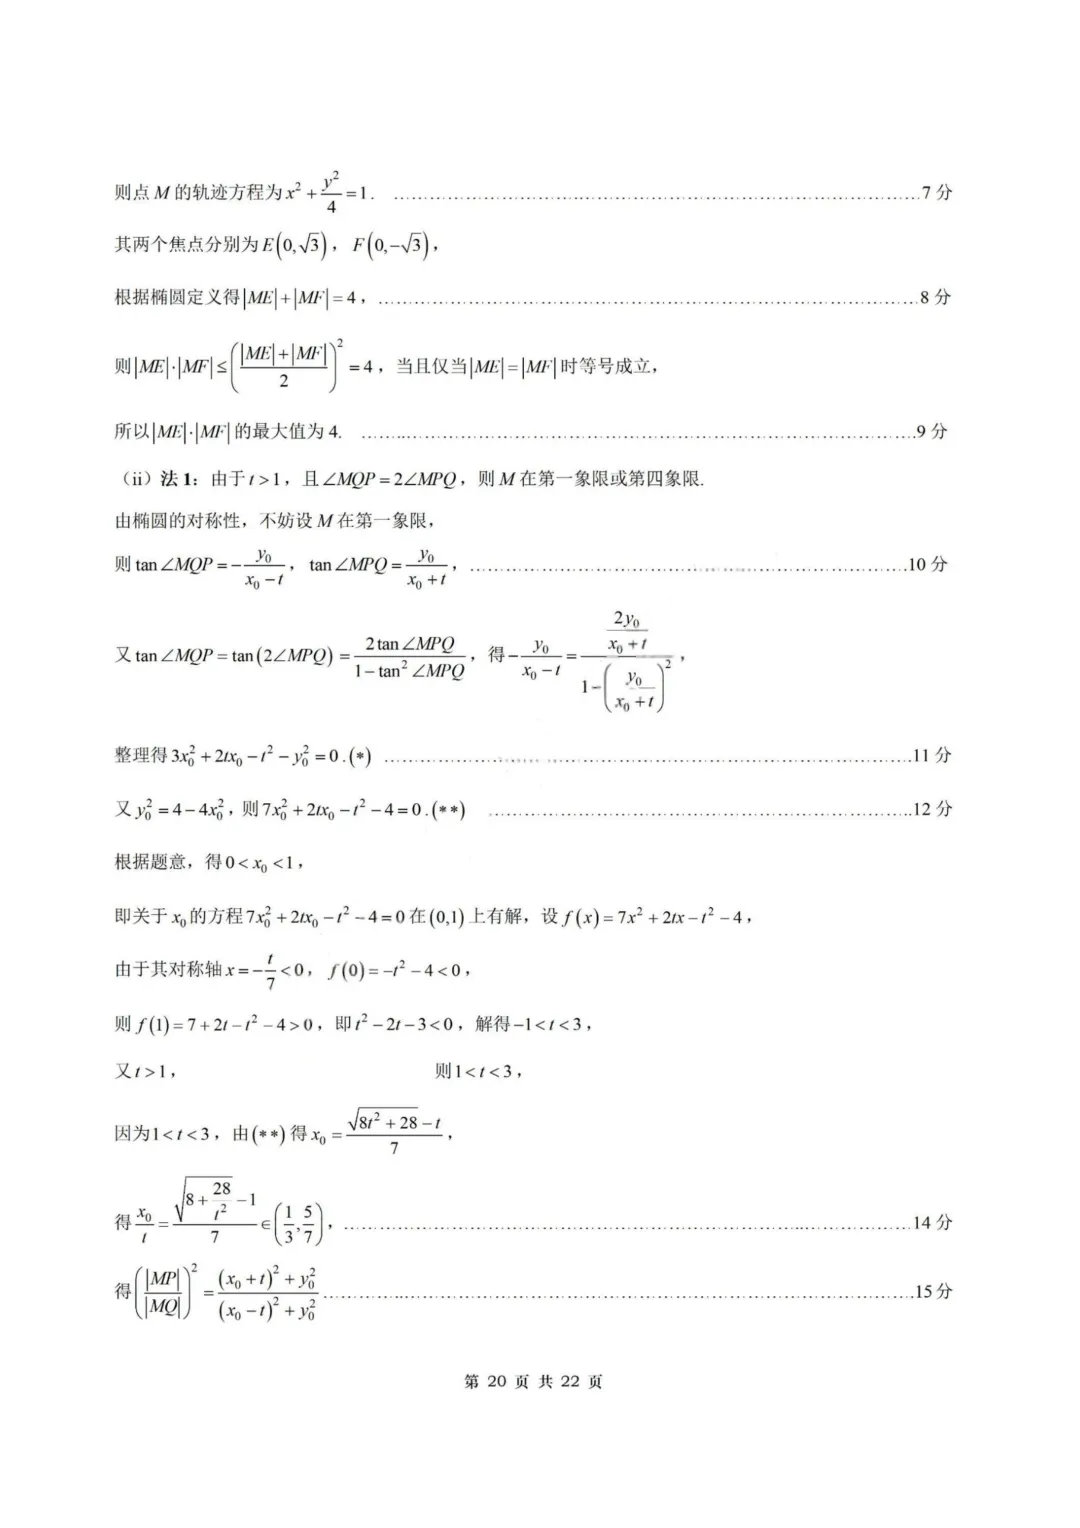 则点 M 的轨迹方程为 x² + y²/4 = 1. ……7 分
其两个焦点分别为 E(0,√3)，F(0,-√3)，
根据椭圆定义得|ME|+|MF|=4，……8 分
则|ME|·|MF|≤((|ME|+|MF|)/2)²=4，当且仅当|ME|=|MF|时等号成立，
所以|ME|·|MF|的最大值为 4. ……9 分
（ii）法 1：由于 t>1，且∠MQP=2∠MPQ，则 M 在第一象限或第四象限.
由椭圆的对称性，不妨设 M 在第一象限，
则 tan∠MQP=-y₀/(x₀-t)，tan∠MPQ=y₀/(x₀+t)，……10 分
又 tan∠MQP=tan(2∠MPQ)=2tan∠MPQ/(1-tan²∠MPQ)，得-y₀/(x₀-t)=(2y₀/(x₀+t))/(1-(y₀/(x₀+t))²)，
整理得 3x₀²+2tx₀-t²-y₀²=0.(*) ……11 分
又 y₀²=4-4x₀²，则 7x₀²+2tx₀-t²-4=0.(**) ……12 分
根据题意，得 0<x₀<1，
即关于 x₀ 的方程 7x₀²+2tx₀-t²-4=0 在(0,1)上有解，设 f(x)=7x²+2tx-t²-4，
由于其对称轴 x=-t/7<0，f(0)=-t²-4<0，
则 f(1)=7+2t-t²-4>0，即 t²-2t-3<0，解得-1<t<3，
又 t>1， 则 1<t<3，
因为 1<t<3，由(**)得 x₀=(√(8t²+28)-t)/7，
得 x₀/t=(√(8+28/t²)-1)/7∈(1/3,5/7)，……14 分
得(|MP|/|MQ|)²=((x₀+t)²+y₀²)/((x₀-t)²+y₀²)……15 分
第 20 页 共 22 页